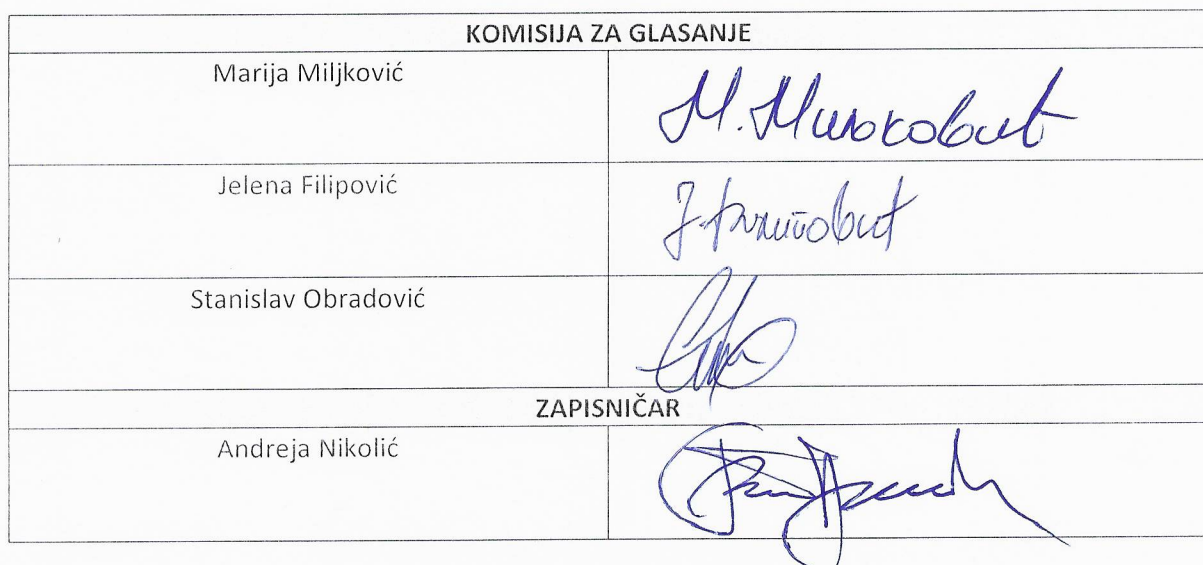 KOMISIJA ZA GLASANJE
Marija Miljković
М. Миљковић
Jelena Filipović
Ј. Филиповић
Stanislav Obradović
ZAPISNIČAR
Andreja Nikolić